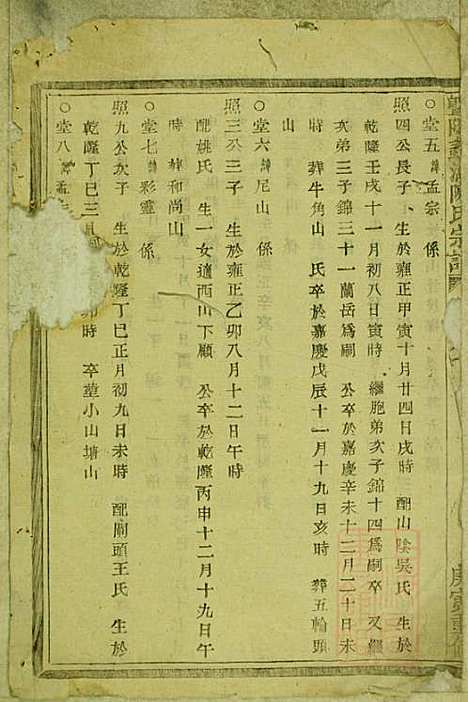 陳氏宗譜
庚寅重修
○堂五諱孟宗 係
照四公長子 生於雍正甲寅十月廿四日戌時 配山陰吳氏 生於
乾隆壬戌十一月初八日寅時 繼胞弟亥子錦十四爲嗣卒 又繼
次弟三子錦三十一蘭岳爲嗣 公卒於嘉慶辛未十二月二十日未
時 葬牛角山 氏卒於嘉慶戊辰十一月十九日亥時 葬五輪頭
山
○堂六諱尼山 係
照三公三子 生於雍正乙卯八月十二日午時
配姚氏 生一女適西山下顧 公卒於乾隆丙申十二月十九日午
時 葬和尚山
○堂七諱彩靈 係
照九公次子 生於乾隆丁巳正月初九日未時 配關頭王氏 生於
乾隆丁巳三月 卯時 卒葬小山塘山
○堂八諱孟